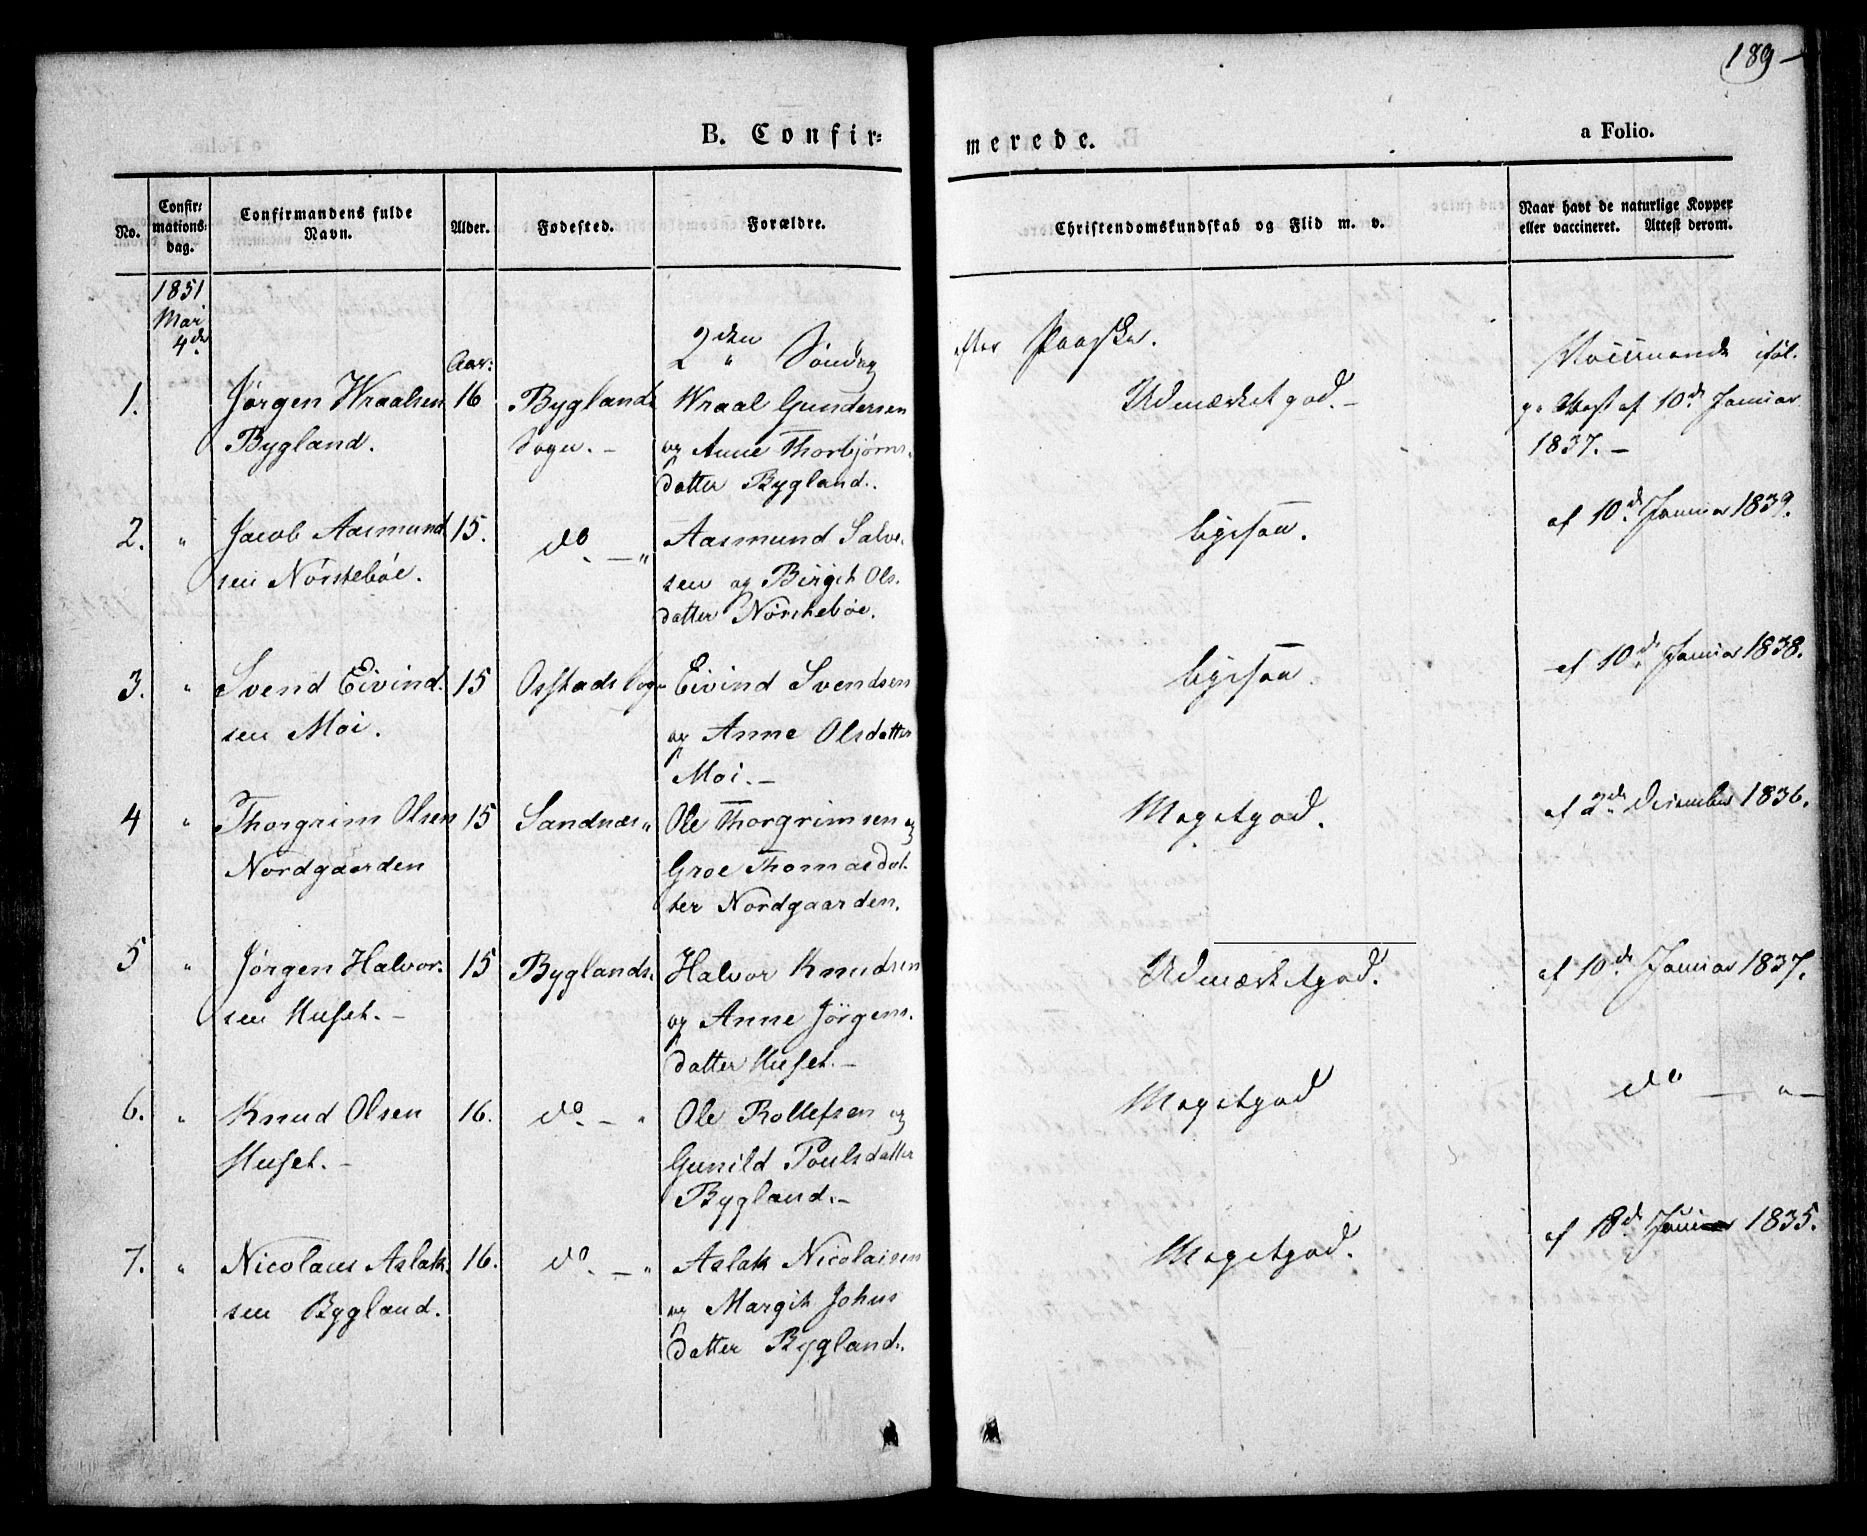 189
B. Confir=
merede.
a Folio.
No.
Confir=
mations=
dag.
Confirmandens fulde
Navn.
Alder.
Fødested.
Forældre.
Christendomskundskab og Flid m. v.
Naar havt de naturlige Kopper
eller vaccineret. Attest derom.
1851
Mai
4de
Aar:
2den Søndag
efter Paaske.
1.
Jørgen Wraalsen
Bygland.
16
Byglands
Sogn. –
Wraal Gundersen
og Anne Thorbjørns-
datter Bygland.
Udmærket god. –
Vaccinerede iføl-
ge Attest af 10de Januar
1837. –
2. "
Jacob Aasmund
sen Nørstebøe.
15.
do. – "
Aasmund Salve-
sen og Birgit Ols-
datter Nørstebøe.
ligesaa.
af 10de Januar 1839.
3. "
Svend Eivind-
sen Moi.
15
Osstads Sogn
Eivind Svendsen
og Anne Olsdatter
Moi. –
ligesaa.
af 10de Januar 1838.
4 "
Thorgrim Olsen
Nordgaarden
15
Sandnæs "
Ole Thorgrimsen og
Groe Thomasdat-
ter Nordgaarden.
Megetgod.
af 2de December 1836.
5 "
Jørgen Halvor-
sen Huset. –
15
Byglands.
Halvor Knudsen
og Anne Jörgens-
datter Huset. –
Udmærketgod.
af 10de Januar 1837.
6. "
Knud Olsen
Huset. –
16.
do. – "
Ole Rollefsen og
Gunild Poulsdatter
Bygland. –
Megetgod
do – " –
7. "
Nicolaus Aslak-
sen Bygland.
16.
do. – "
Aslak Nicolaisen
og Margit Johns
datter Bygland.
Megetgod.
af 18de Januar 1835.